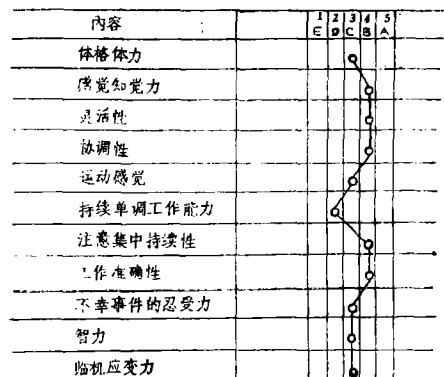 内容 1 2 3 4 5
E D C B A
体格体力
感觉知觉力
灵活性
协调性
运动感觉
持续单调工作能力
注意集中持续性
工作准确性
不幸事件的忍受力
智力
临机应变力